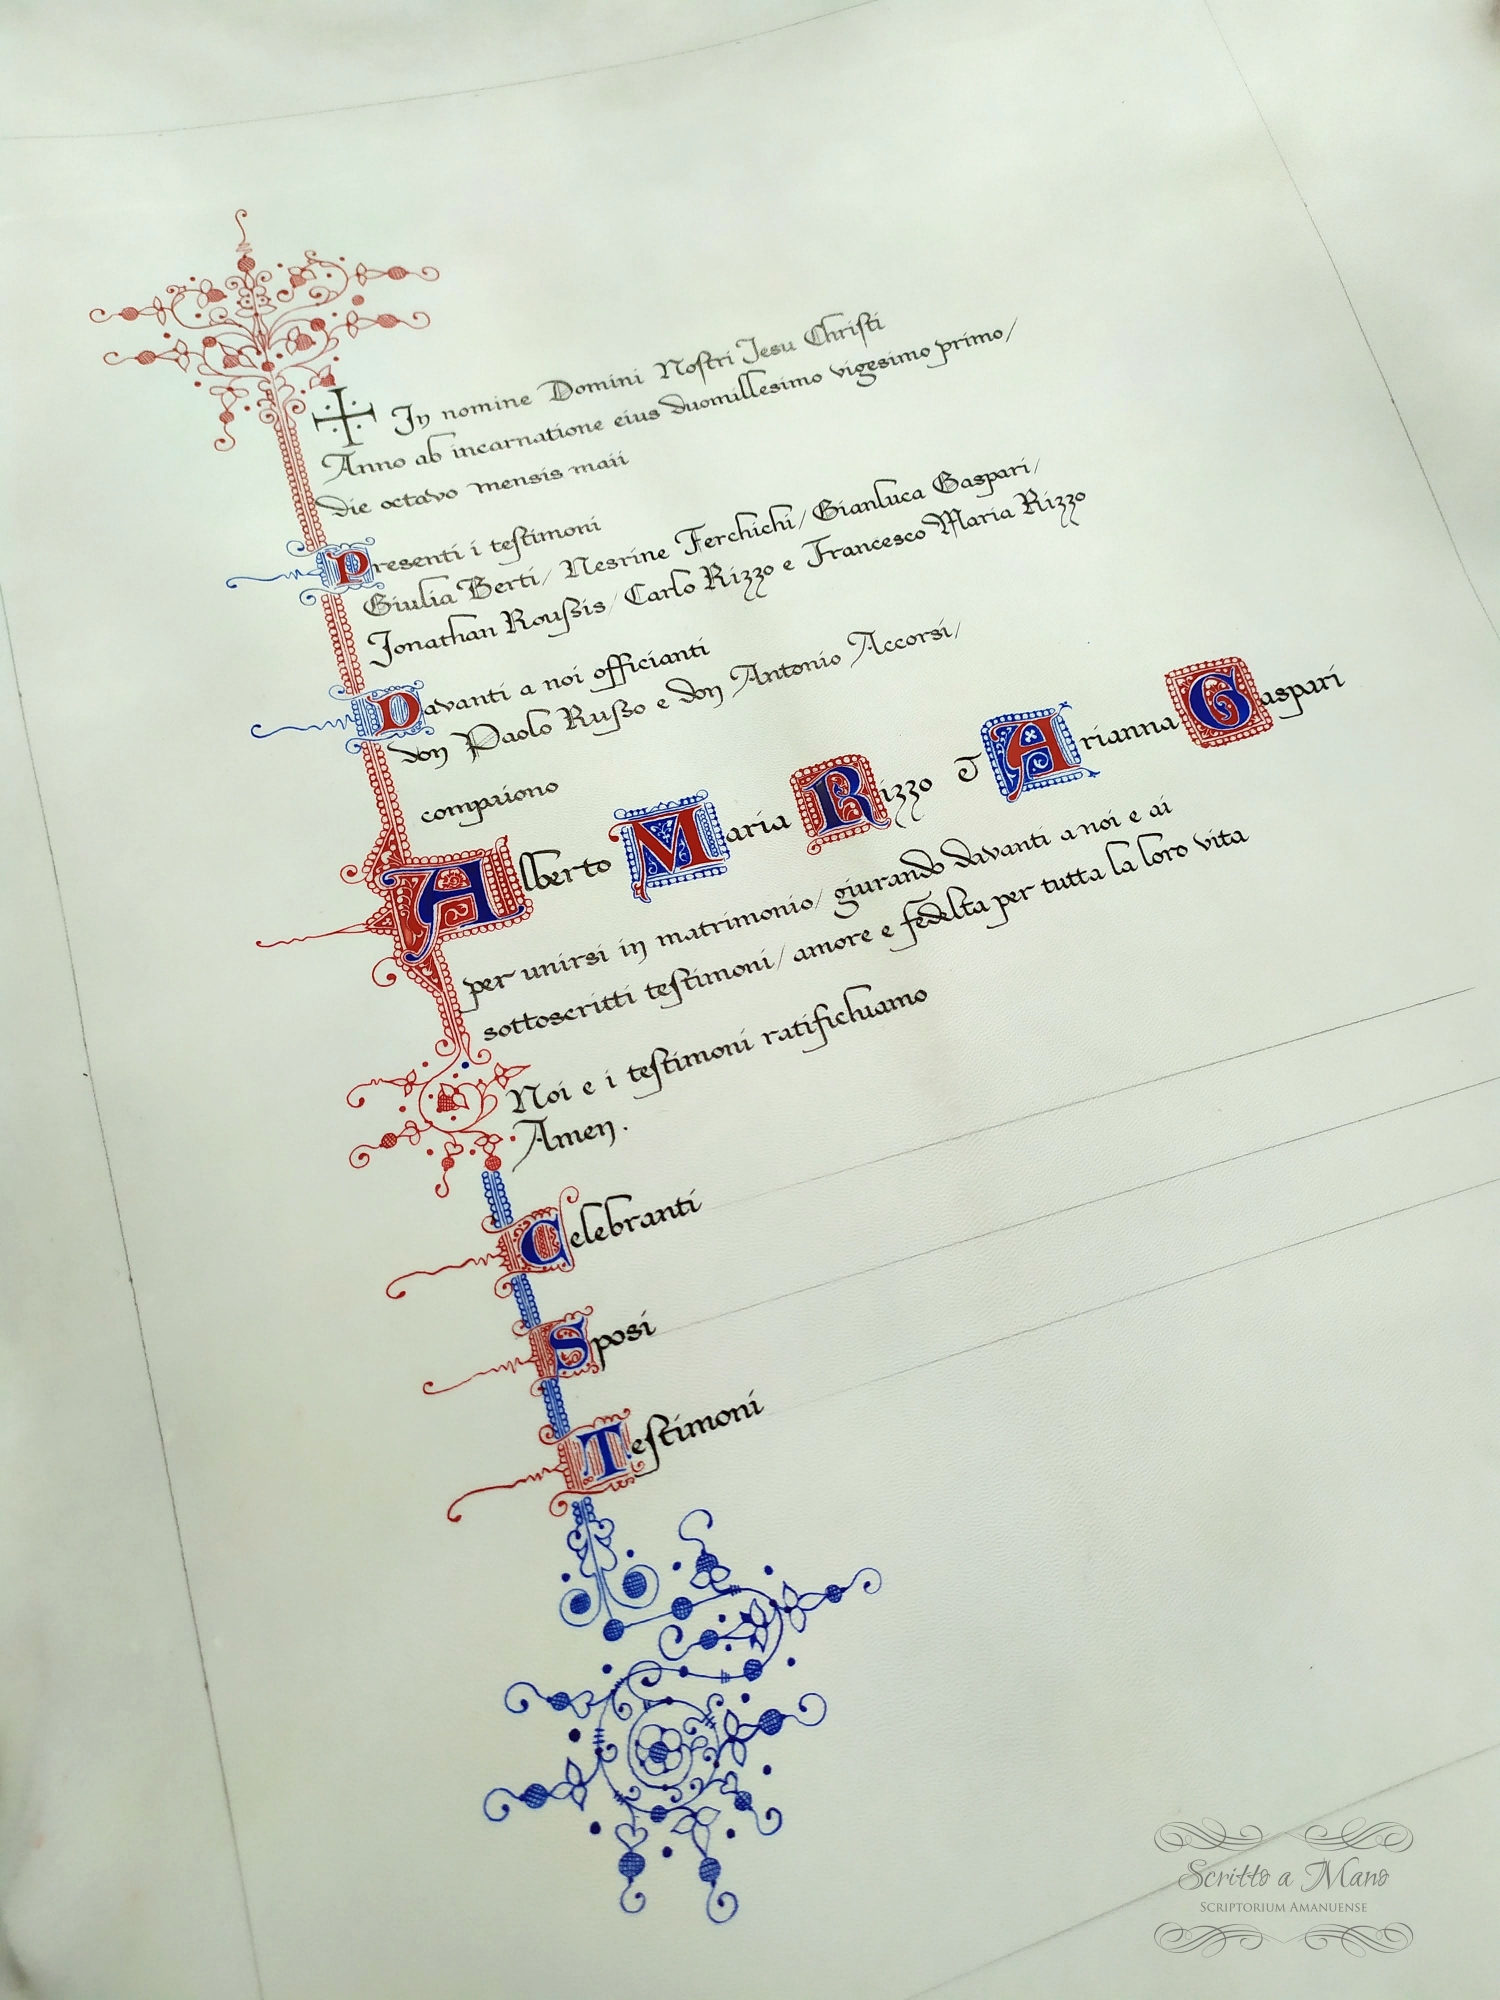 In nomine Domini Nostri Jesu Christi
Anno ab incarnatione eius duomillesimo vigesimo primo/
die octavo mensis maii
Presenti i testimoni
Giulia Berti/ Nesrine Ferchichi/ Gianluca Gaspari/
Jonathan Roussis/ Carlo Rizzo e Francesco Maria Rizzo
Davanti a noi officianti
don Paolo Russo e don Antonio Accorsi/
compaiono
Alberto Maria Rizzo Arianna Gaspari
per unirsi in matrimonio/ giurando davanti a noi e ai
sottoscritti testimoni/ amore e fedelta per tutta la loro vita
Noi e i testimoni ratifichiamo
Amen.
Celebranti
Sposi
Testimoni
Scritto a Mano
SCRIPTORIUM AMANUENSE